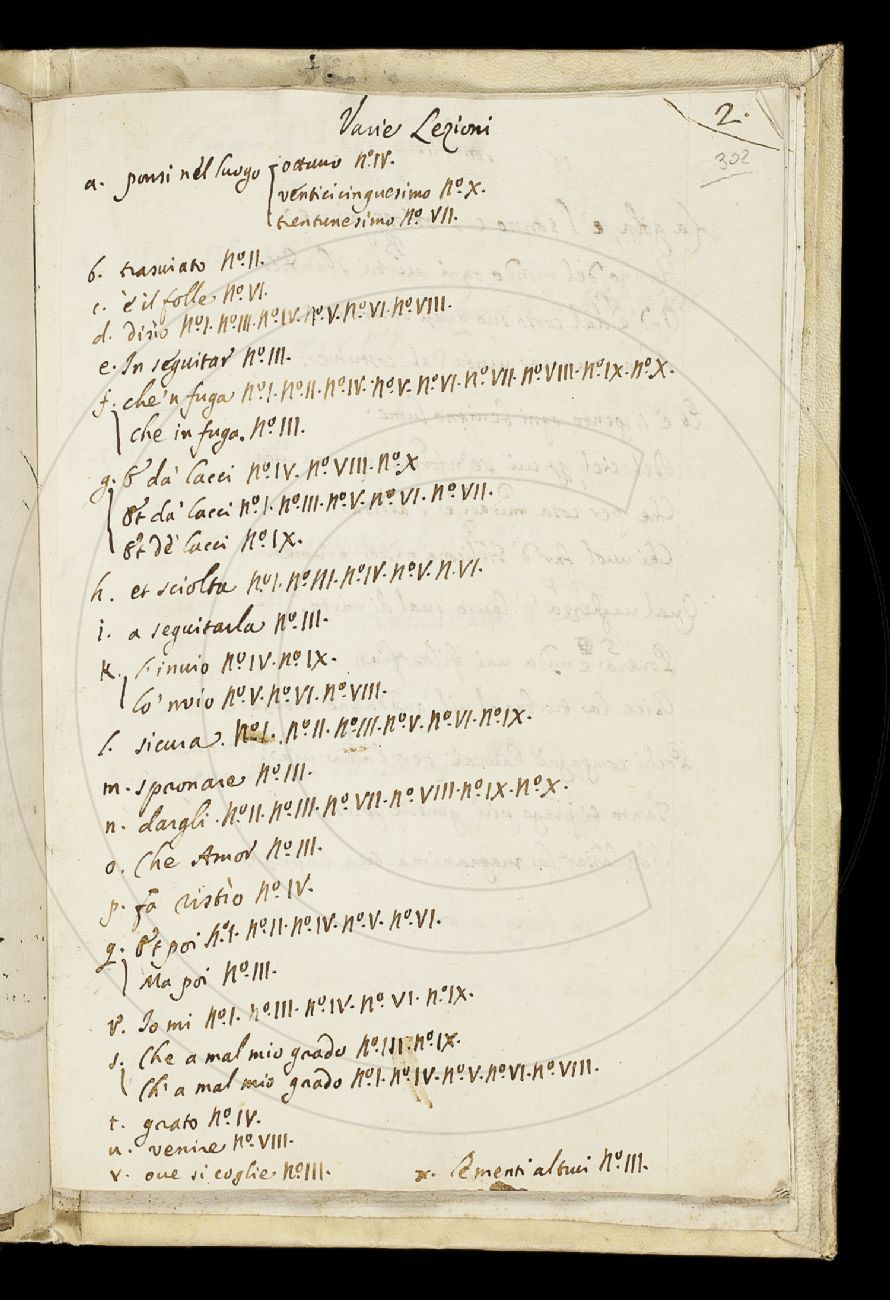 Varie Lezioni
2.
302
a. ponsi nel luogo ottavo Nº. IV.
venticinquesimo Nº. X.
trentunesimo Nº. VII.
b. trasviato Nº. II.
c. è il folle Nº. VI.
d. disio Nº. I. Nº. III. Nº. IV. Nº. V. Nº. VI. Nº. VIII.
e. In seguitar Nº. III.
f. che'n fuga Nº. I. Nº. II. Nº. IV. Nº. V. Nº. VI. Nº. VII. Nº. VIII. Nº. IX. Nº. X.
che in fuga. Nº. III.
g. & da' lacci Nº. IV. Nº. VIII. Nº. X
&t da' lacci Nº. I. Nº. III. Nº. V. Nº. VI. Nº. VII.
&t de' lacci Nº. IX.
h. et sciolta Nº. I. Nº. III. Nº. IV. Nº. V. N. VI.
i. a seguitarla Nº. III.
k. l'invio Nº. IV. Nº. IX.
lo'nvio Nº. V. Nº. VI. Nº. VIII.
l. sicura. Nº. I. Nº. II. Nº. III. Nº. V. Nº. VI. Nº. IX.
m. spronare Nº. III.
n. dargli. Nº. II. Nº. III. Nº. VII. Nº. VIII. Nº. IX. Nº. X.
o. Che Amor Nº. III.
p. fa ristìo Nº. IV.
q. &t poi Nº. I. Nº. II. Nº. IV. Nº. V. Nº. VI.
Ma poi Nº. III.
r. Io mi Nº. I. Nº. III. Nº. IV. Nº. VI. Nº. IX.
s. Che a mal mio grado Nº. III. Nº. IX.
Ch'a mal mio grado Nº. I. Nº. IV. Nº. V. Nº. VI. Nº. VIII.
t. grato Nº. IV.
u. venire Nº. VIII.
v. ove si coglie Nº. III. x. Le menti altrui Nº. III.